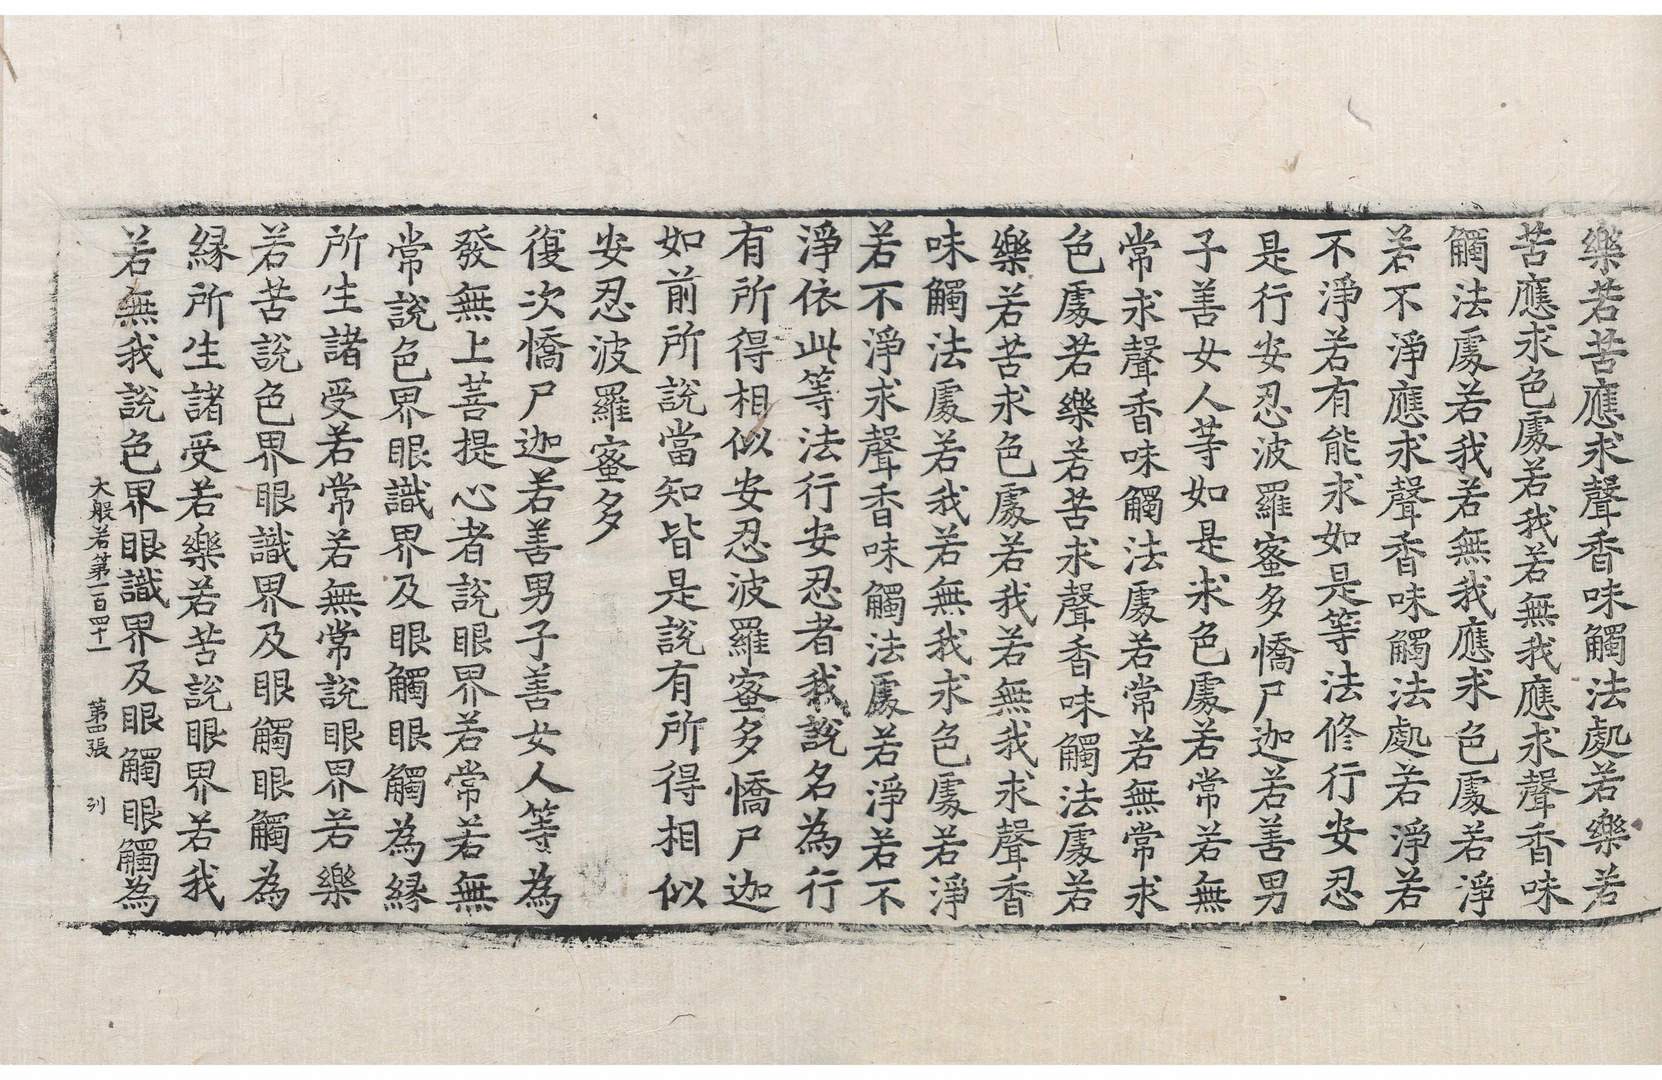 樂若苦應求聲香味觸法處若樂若
苦應求色處若我若無我應求聲香味
觸法處若我若無我應求色處若淨
若不淨應求聲香味觸法處若淨若
不淨若有能求如是等法修行安忍
是行安忍波羅蜜多憍尸迦若善男
子善女人等如是求色處若常若無
常求聲香味觸法處若常若無常求
色處若樂若苦求聲香味觸法處若
樂若苦求色處若我若無我求聲香
味觸法處若我若無我求色處若淨
若不淨求聲香味觸法處若淨若不
淨依此等法行安忍者我說名為行
有所得相似安忍波羅蜜多憍尸迦
如前所說當知皆是說有所得相似
安忍波羅蜜多
復次憍尸迦若善男子善女人等為
發無上菩提心者說眼界若常若無
常說色界眼識界及眼觸眼觸為緣
所生諸受若常若無常說眼界若樂
若苦說色界眼識界及眼觸眼觸為
緣所生諸受若樂若苦說眼界若我
若無我說色界眼識界及眼觸眼觸為
大般若第一百四十一 第四張 列